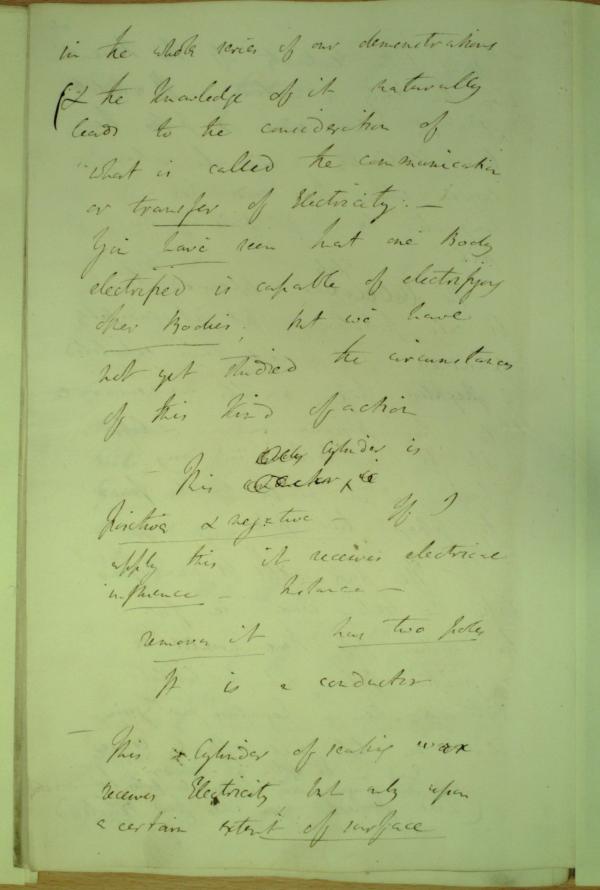 in the whole series of our demonstrations
& the Knowledge of it naturally
leads to the consideration of
what is called the communication
or transfer of Electricity. —
You have seen that one Body
electrified is capable of electrifying
other Bodies; but we have
not yet studied the circumstances
of this Kind of action
Cylinder is
This
positive & negative — If I
apply this it receives electrical
influence — Instance —
remove it has two poles
It is a conductor
— This Cylinder of sealing wax
receives Electricity but only upon
a certain extent of surface